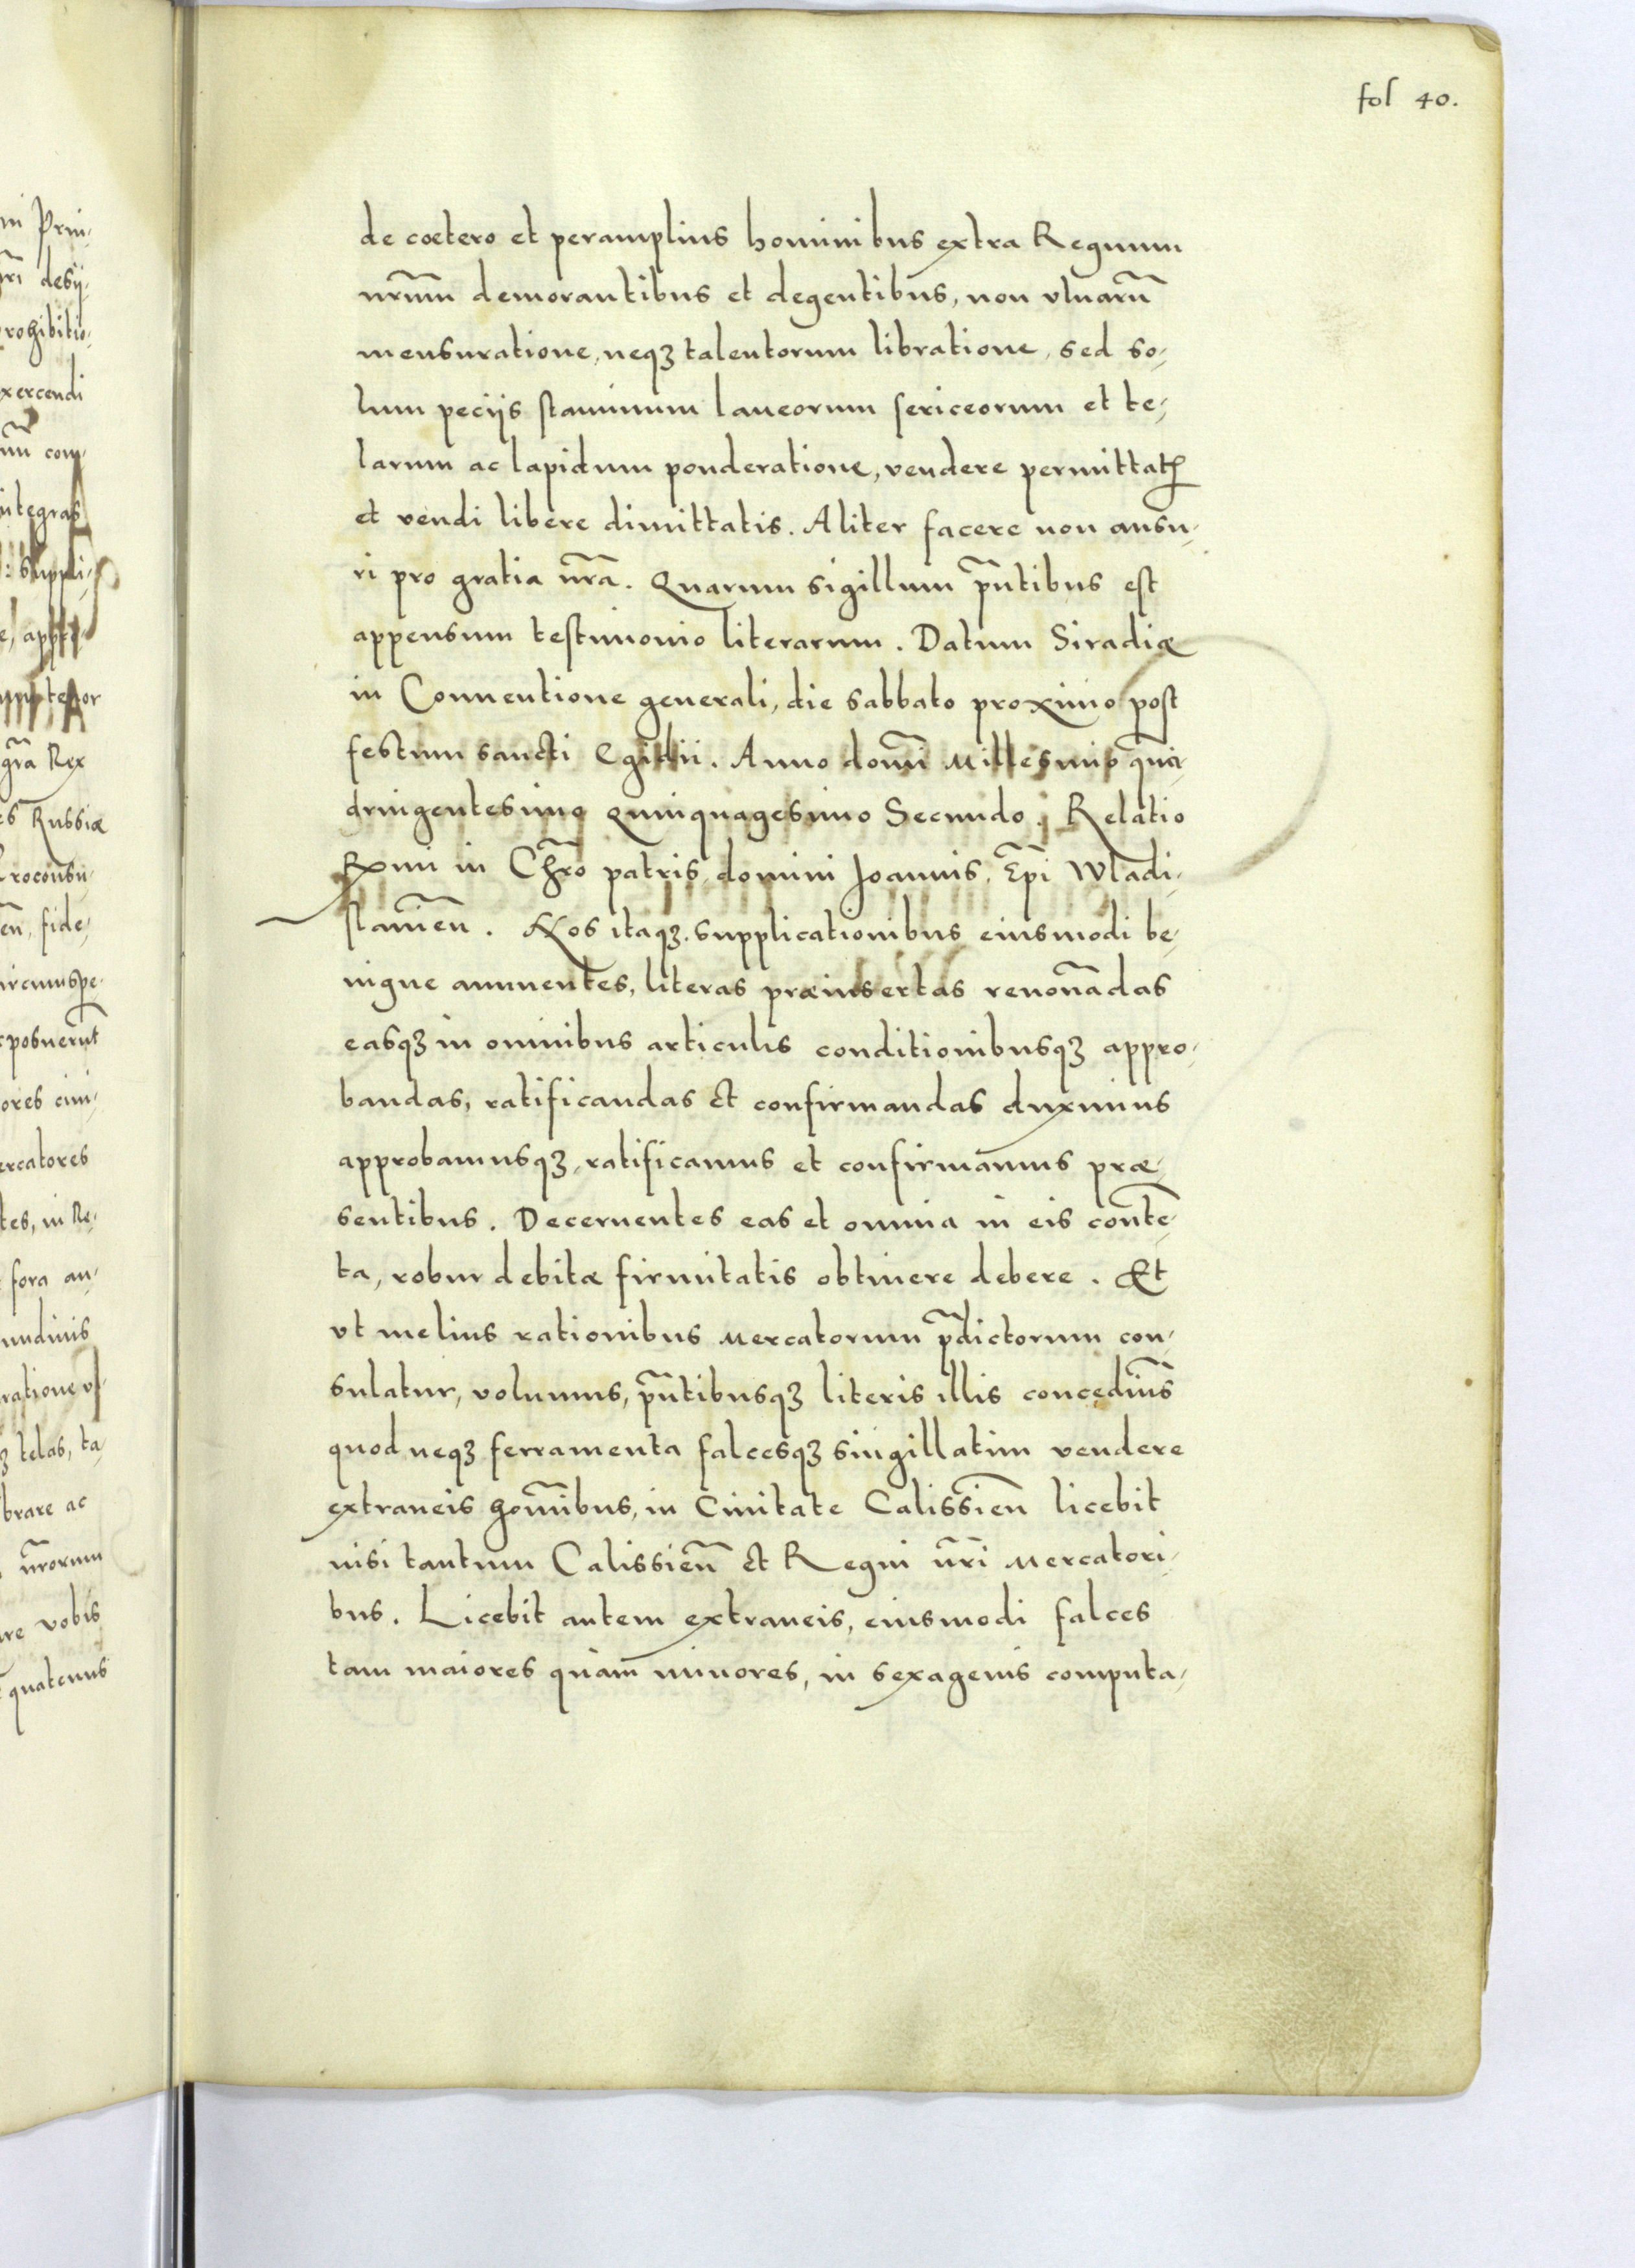 fol 40.
de cœtero et peramplius hominibus extra Regnum
nr̃um demorantibus et degentibus, non vlnarũ
mensuratione, neqꝫ talentorum libratione, sed so-
lum peciis staminum laneorum sericeorum et te-
larum ac lapidum ponderatione, vendere permittatꝭ
et vendi libere dimittatis. Aliter facere non ausu-
ri pro gratia nr̃a. Quarum sigillum pñtibus est
appensum testimonio literarum. Datum Siradiæ
in Conuentione generali, die sabbato proximo post
festum sancti Egidii. Anno domĩ Millesimo qua-
dringentesimo Quinquagesimo Secundo. Relatio
Rxmi in Chr̃o patris domini Joannis, Ep̃i Wladi-
slauień. Nos itaqꝫ supplicationibus eiusmodi be-
nigne annuentes, literas præinsertas renouãdas
easqꝫ in omnibus articulis conditionibusqꝫ appro-
bandas, ratificandas et confirmandas duximus
approbamusqꝫ, ratificamus et confirmamus præ-
sentibus. Decernentes eas et omnia in eis contẽ-
ta, robur debitæ firmitatis obtinere debere. Et
vt melius rationibus Mercatorum p̃dictorum con-
sulatur, volumus, pñtibusqꝫ literis illis concedimũs
quod neqꝫ ferramenta falcesqꝫ singillatim vendere
extraneis homĩbus, in Ciuitate Calissień licebit
nisi tantum Calissień et Regni nr̃i Mercatori-
bus. Licebit autem extraneis, eiusmodi falces
tam maiores quàm minores, in sexagenis computa-